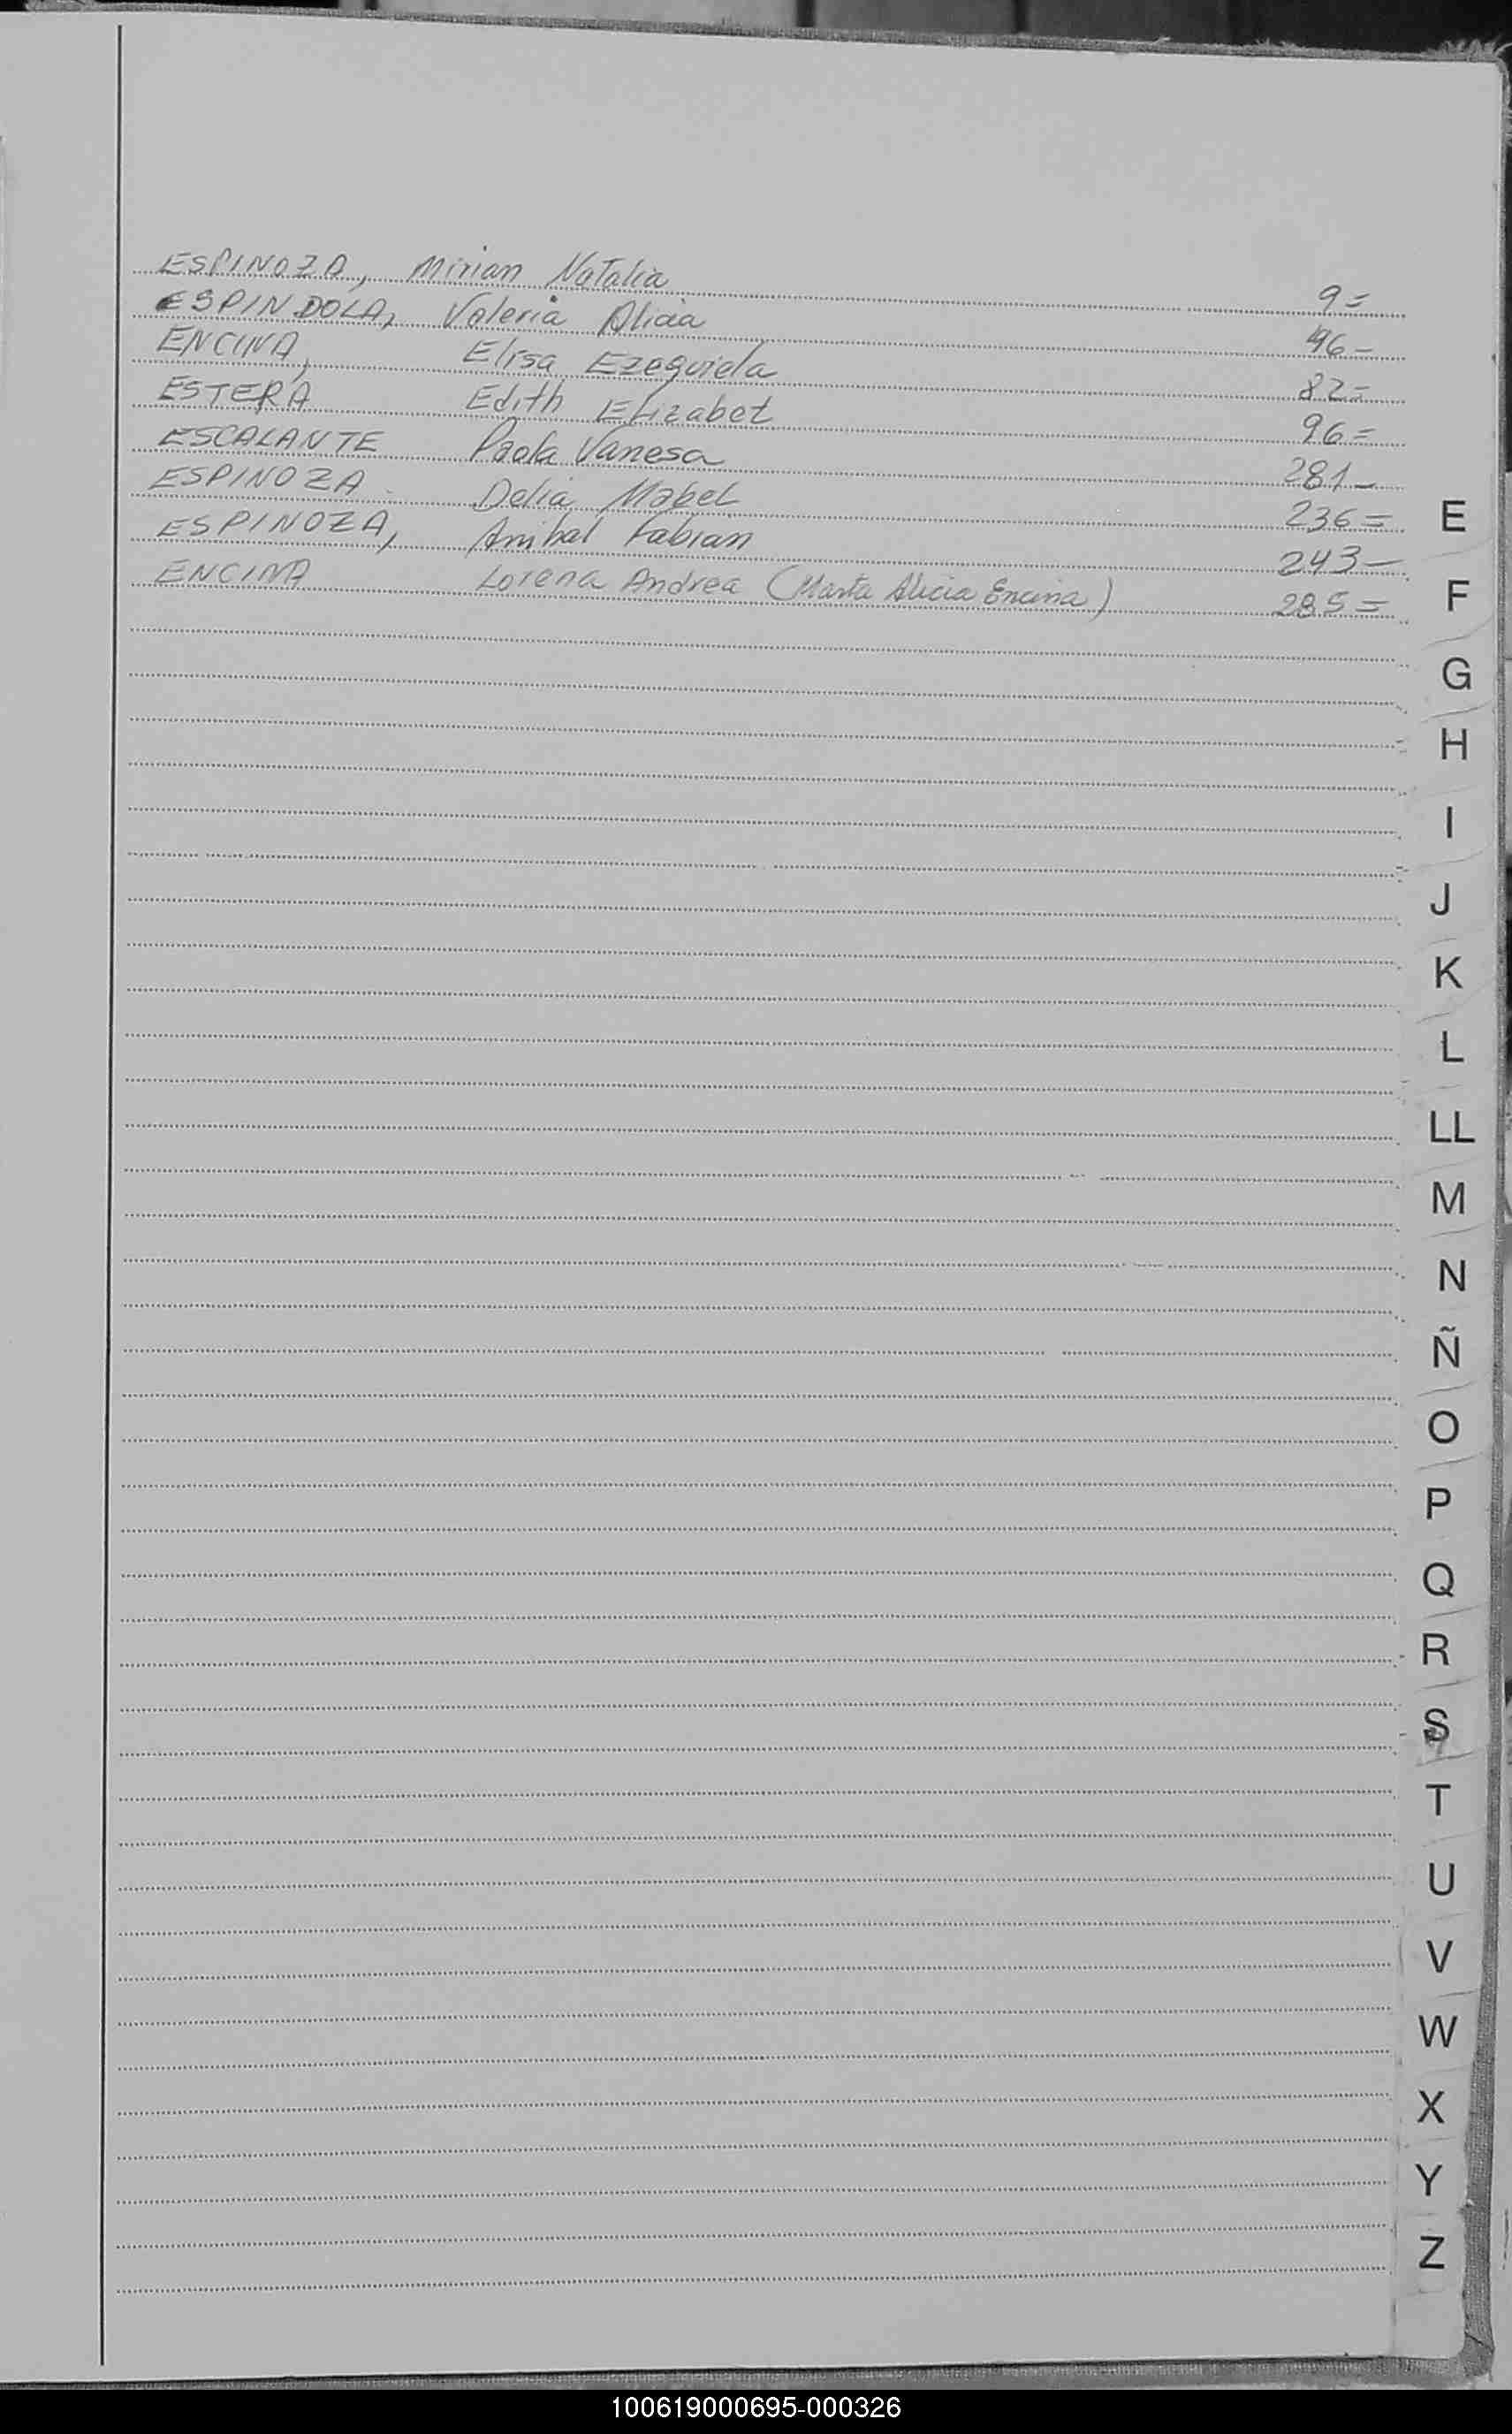 ESPINOZA, Mirian Natalia 9=
ESPINDOLA, Valeria Alicia 46-
ENCINA, Elisa Ezequiela 82=
ESTERA Edith Elizabet 96=
ESCALANTE Paola Vanesa 281-
ESPINOZA - Delia Mabel 236=
ESPINOZA, Anibal Fabian 243-
ENCINA Lorena Andrea (Marta Alicia Encina) 285=
E
F
G
H
I
J
K
L
LL
M
N
Ñ
O
P
Q
R
S
T
U
V
W
X
Y
Z
100619000695-000326